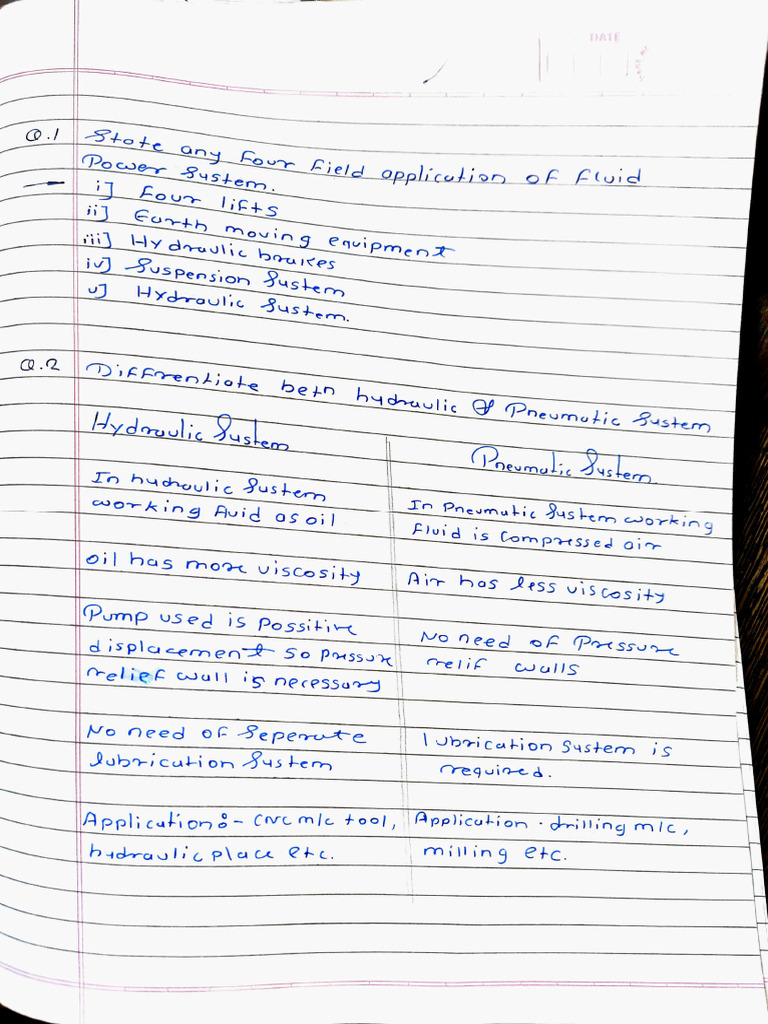 DATE
Q.1 State any four field application of fluid
Power System.
i] Four lifts
ii] Earth moving equipment
iii] Hydraulic brakes
iv] Suspension System
v] Hydraulic System.
Q.2 Diffrentiate betn hydraulic & Pneumatic System
Hydraulic System
Pneumatic System.
In hydraulic System
working fluid as oil
In Pneumatic System working
fluid is compressed air
oil has more viscosity
Air has less viscosity
Pump used is possitive
displacement so pressure
relief wall is necessary
No need of Pressure
relif walls
No need of Seperate
lubrication System
lubrication System is
required.
Application:- CNC m/c tool,
hydraulic place etc.
Application. drilling m/c,
milling etc.